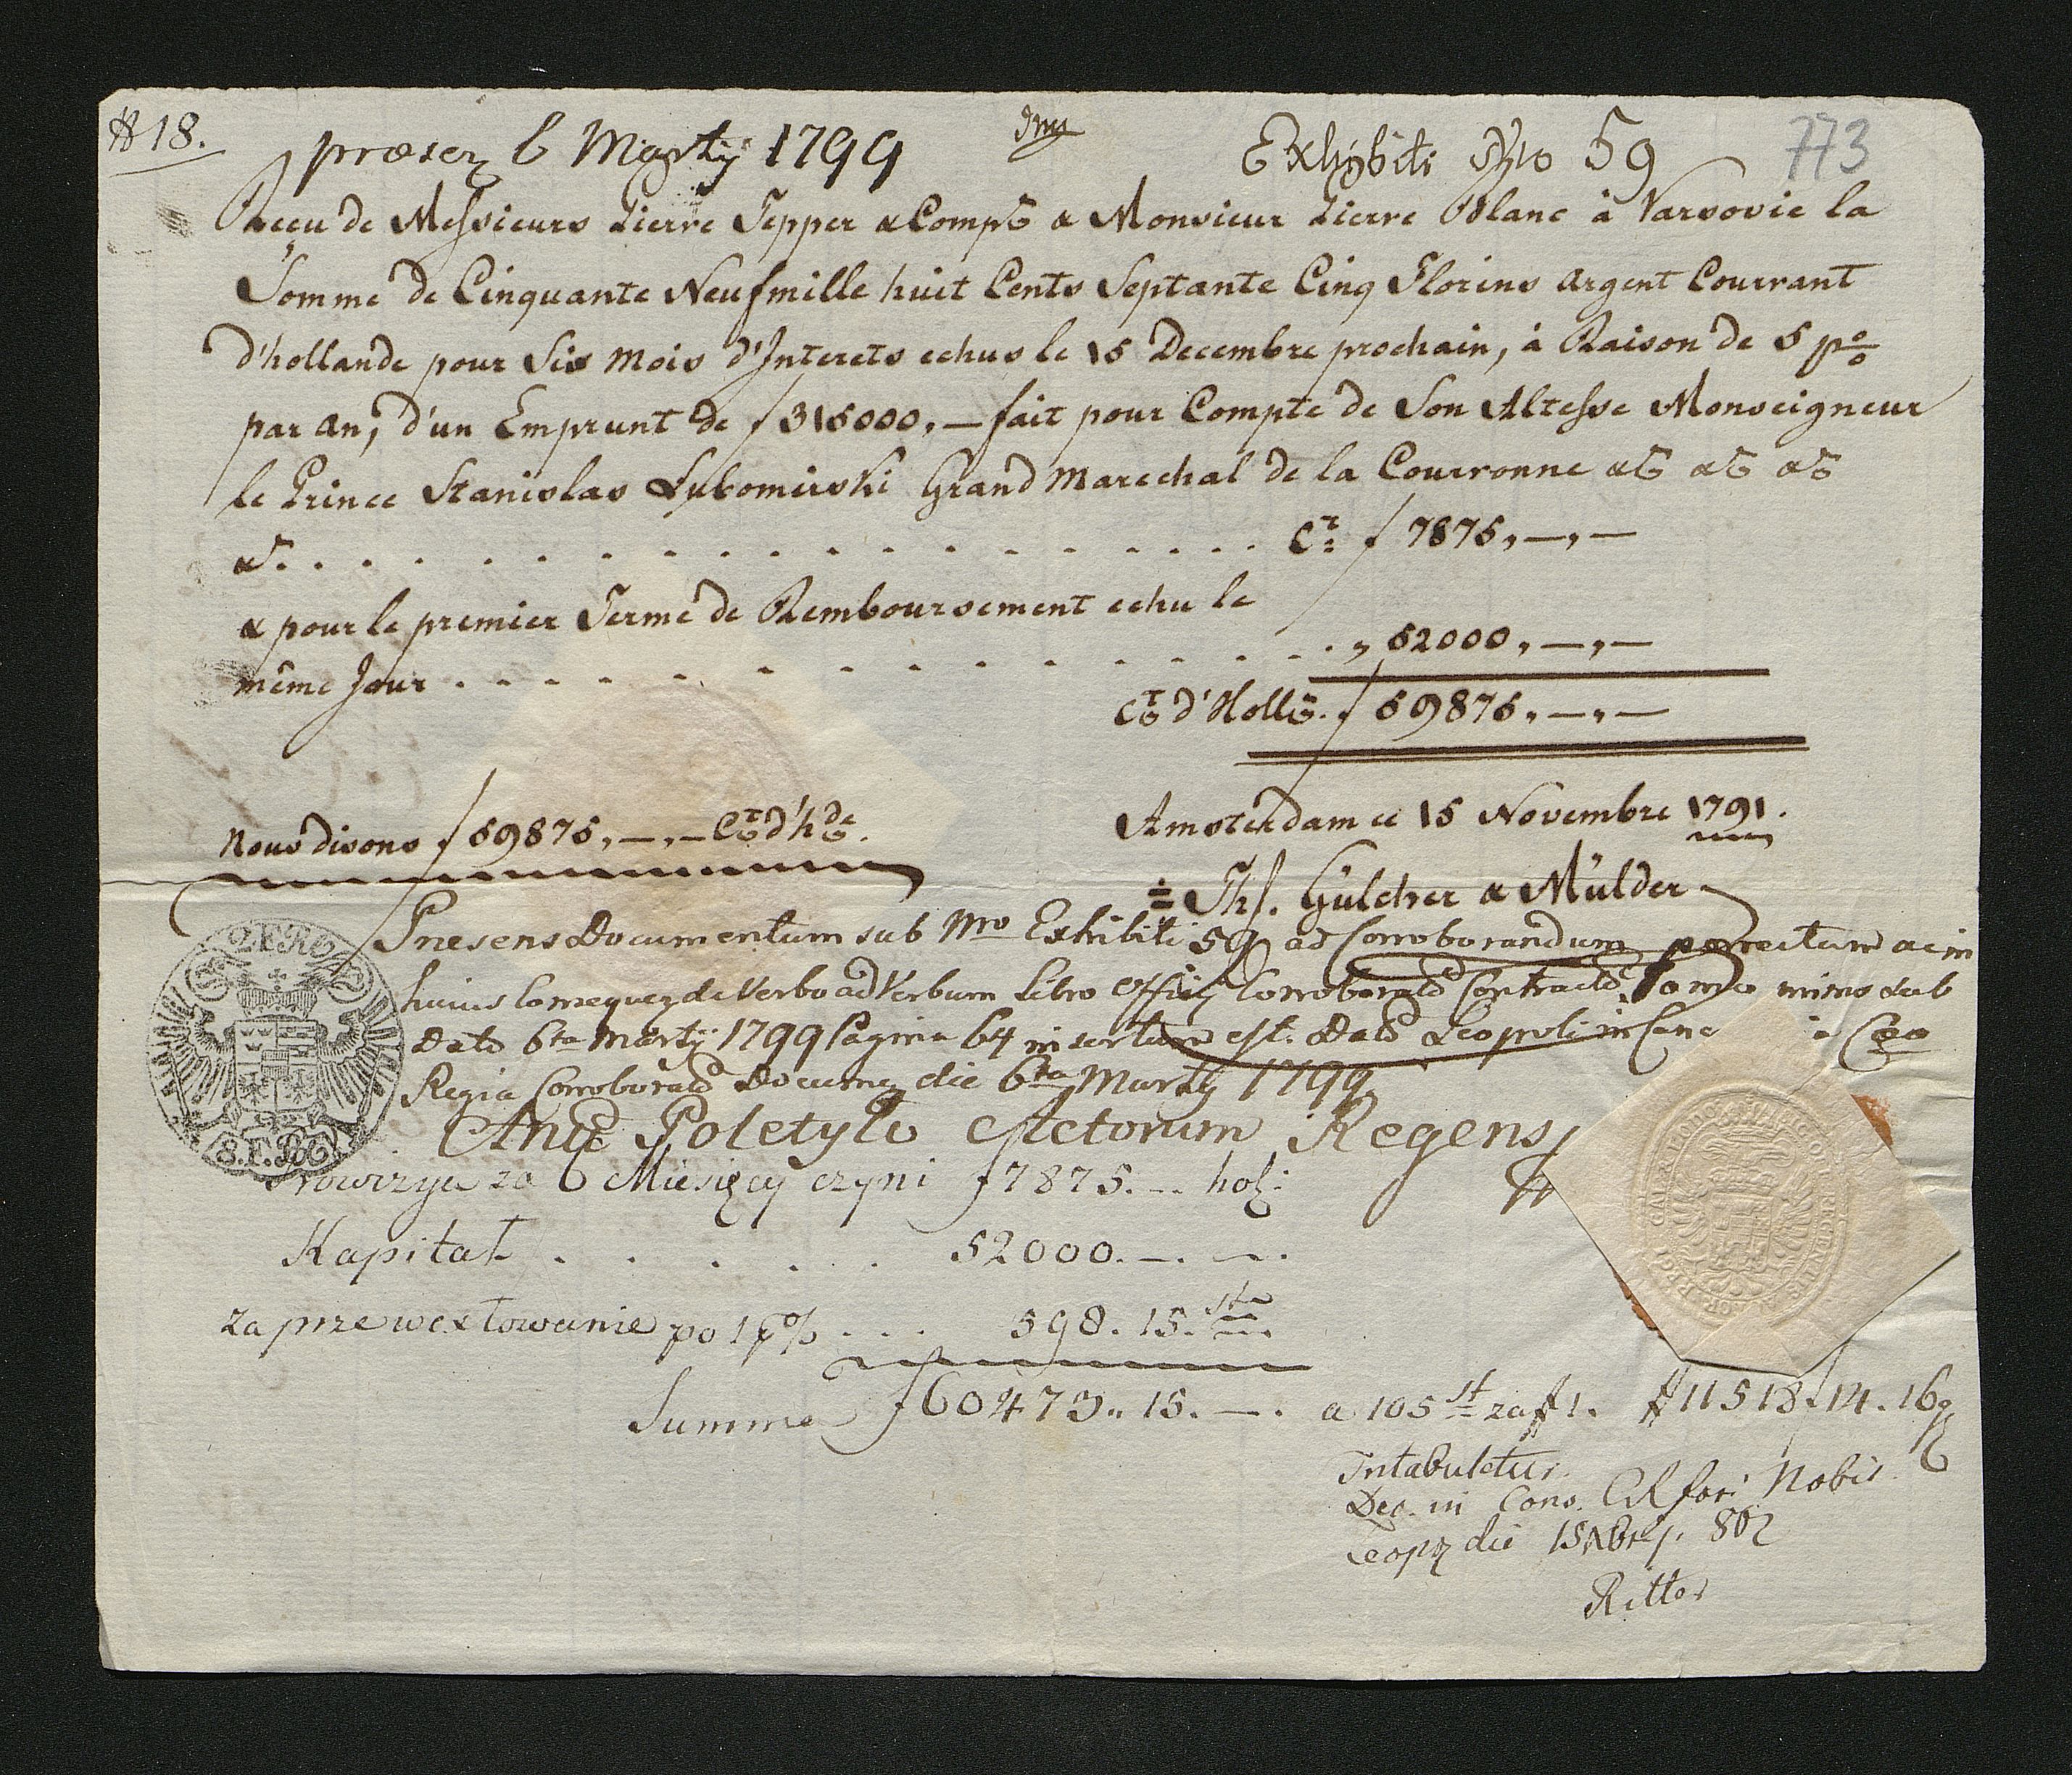 # 18.
præsen 6 Martij 1799
Exhibiti Nro 59
773
Reçu de Messieurs Pierre Tepper & Compe & Monsieur Pierre Blanc à Varsovie la
Somme de Cinquante Neufmille huit Cents Septante Cinq Florins argent Courrant
d'hollande pour Six Mois d'Interets echus le 15 Decembre prochain, à Raison de 5 p%
par an, d'un Emprunt de f 315000,— fait pour Compte de Son Altesse Monseigneur
le Prince Stanislas Lubomirski Grand Marechal de la Courronne &c &c &c
&c . . . . . . . . . . . . . . . . . . Ct: f 7875,—,—
& pour le premier Terme de Remboursement echu le
même Jour . . . . . . . . . . . . . . „ 52000,—,—
Ct d'Holle. f 59875,—,—
Nous disons f 59875,—,— Ct d'hde.
Amsterdam ce 15 Novembre 1791.
Ths. Gülcher & Mülder
Præsens Documentum sub Nro Exhibiti 59 ad Corroborandum porrectum ac in
huius de Verbo ad Verbum Libro Corroborat Contract Tomo sub
Dato 6ta Martij 1799 Pagina 64 insertum est. Dat Leopoli in Canc Ceo
Regia Corroborat Documen die 6ta Martij 1799
Ant Poletylo Actorum Regens
2 KR
8. r.
Prowizya za 6 Miesięcy czyni f 7875. — hol:
Kapitał . . . . . 52000. —. —.
za przewexlowanie po 1 p% . . . 598. 15. st
Summa f 60473. 15. —. a 105 st za # 1. # 11518 f 14. 16 g
Intabuletur.
Dec. in Cons. Nobil.
Leop die 15 Nbris. 802
Ritter